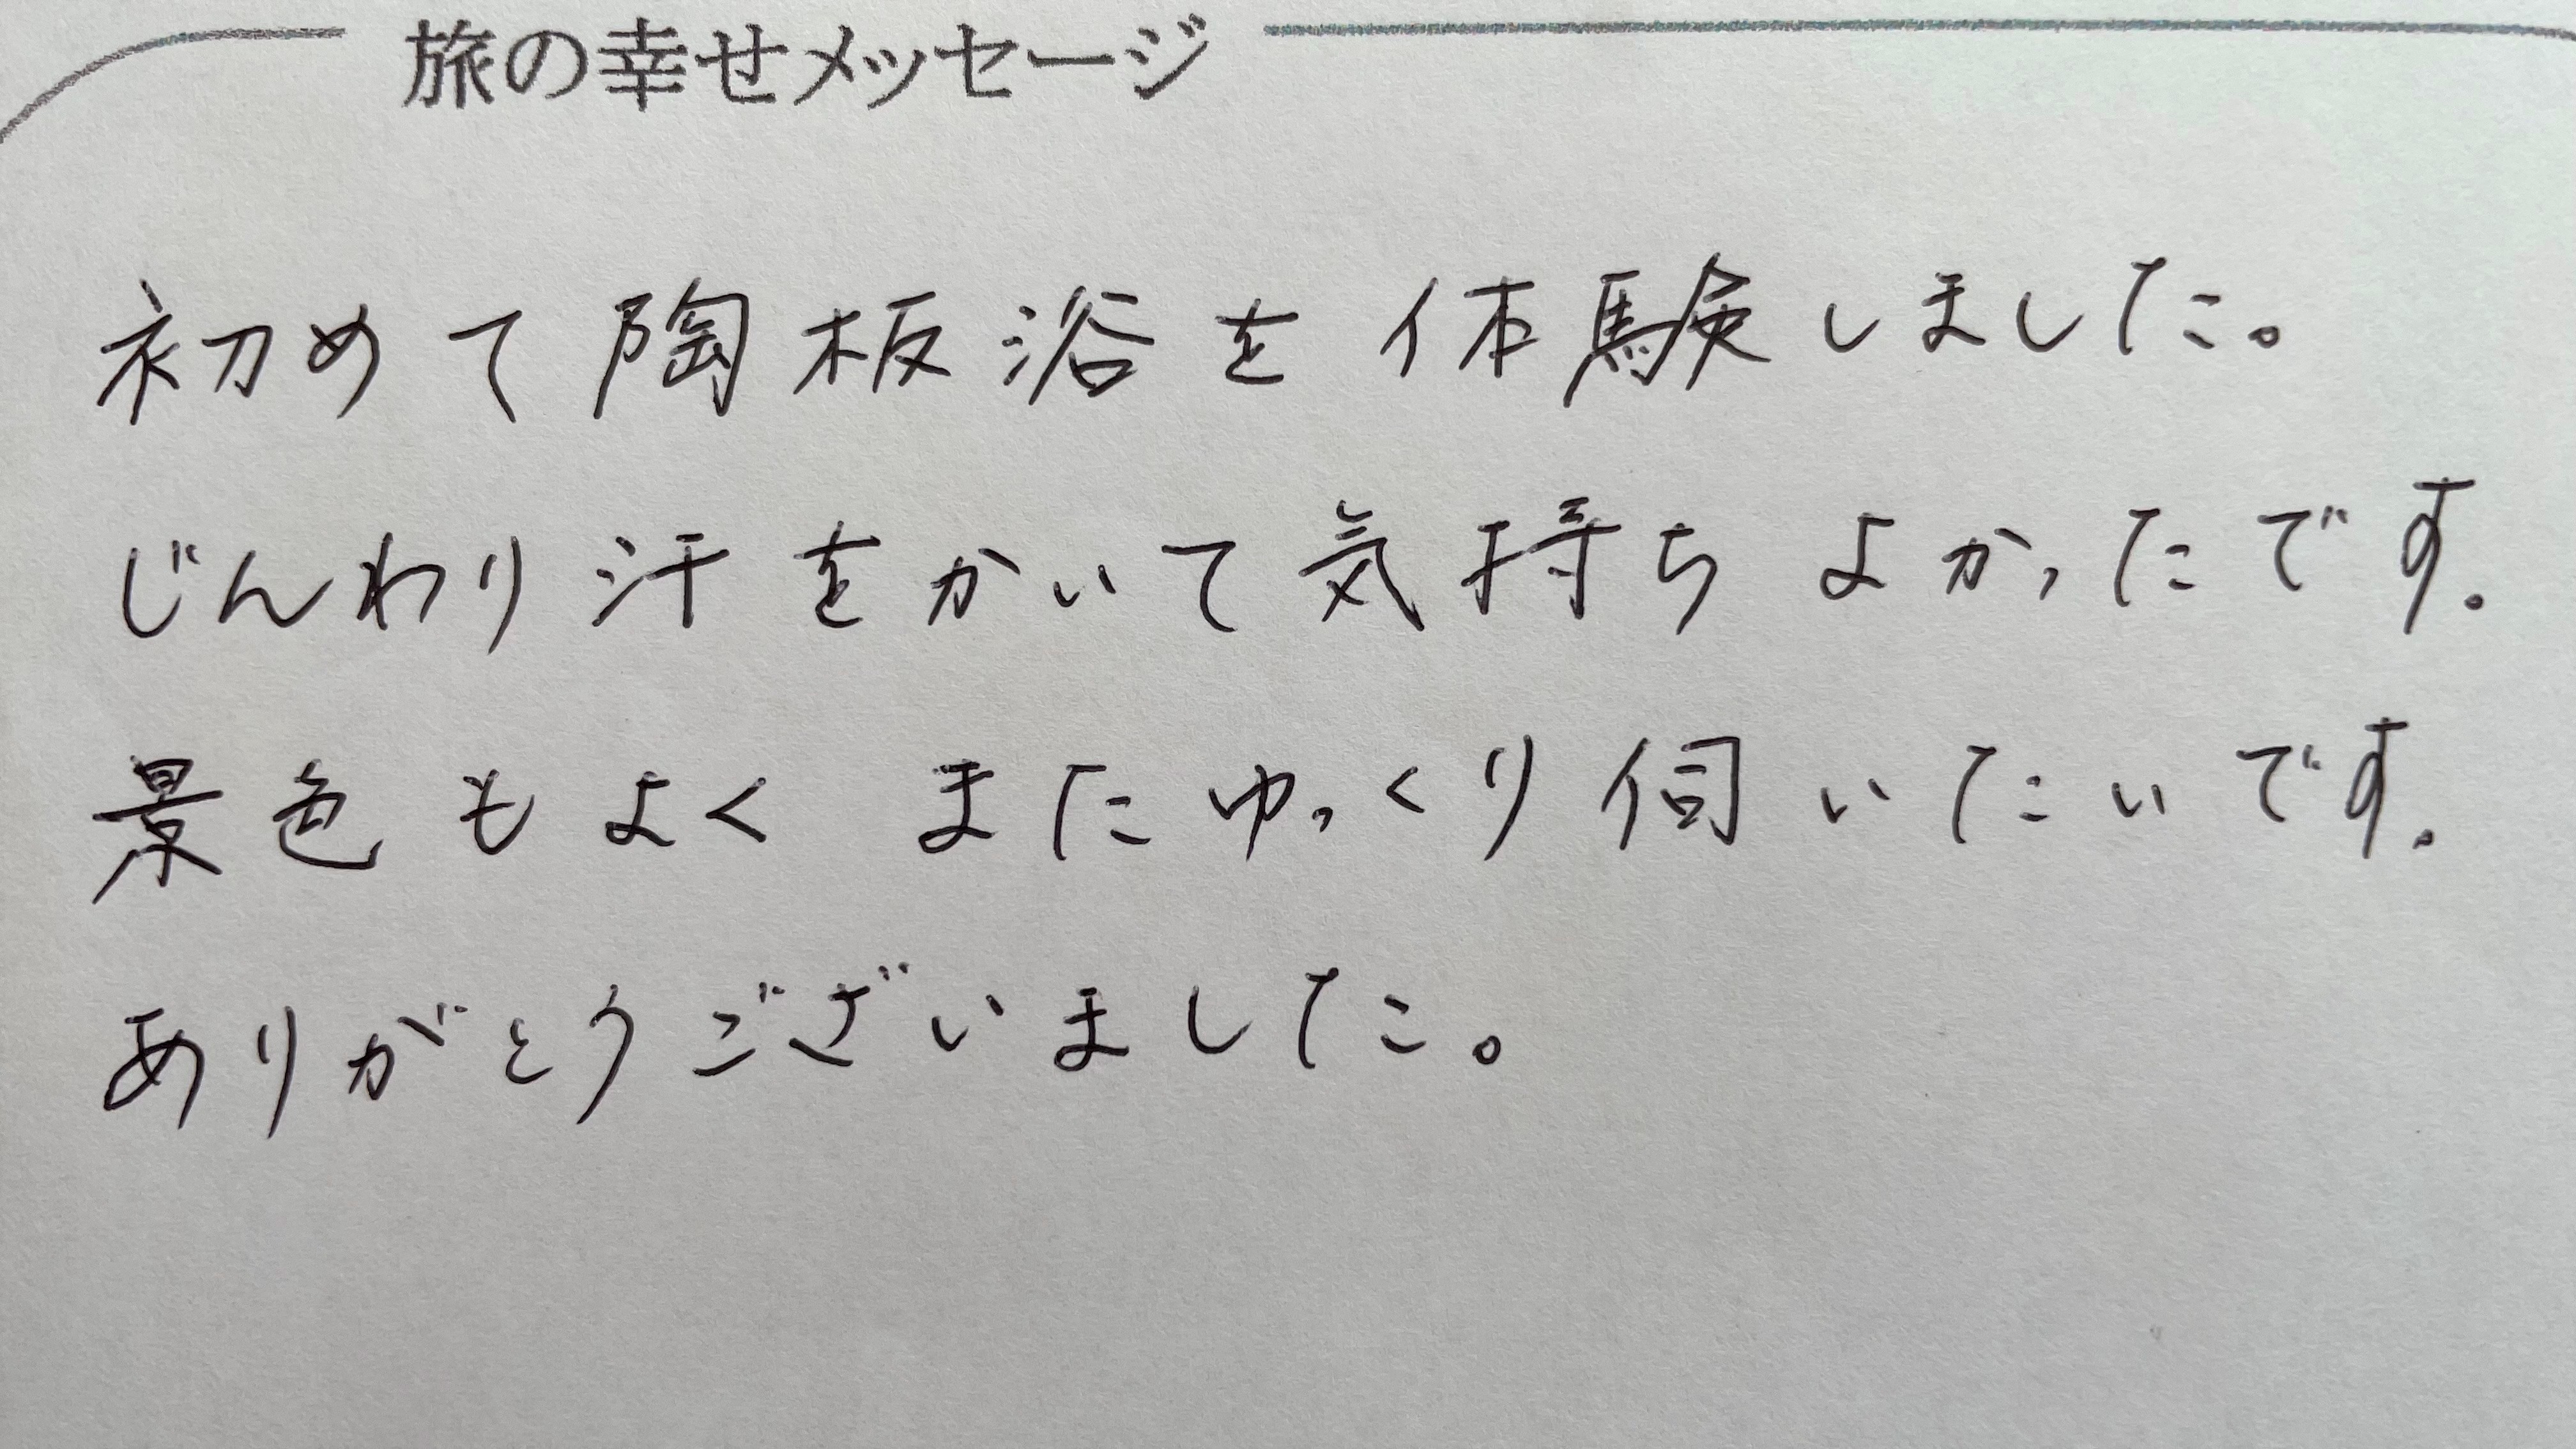 旅の幸せメッセージ
初めて陶板浴を体験しました。
じんわり汗をかいて気持ちよかったです。
景色もよく またゆっくり伺いたいです。
ありがとうございました。